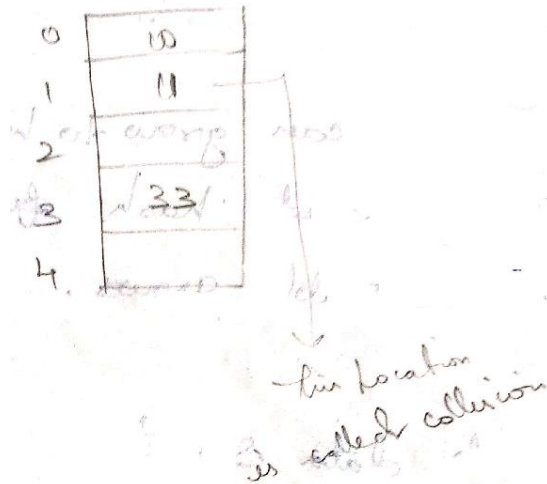 0 10
1 11
2
3 33
4
this location
is called collision